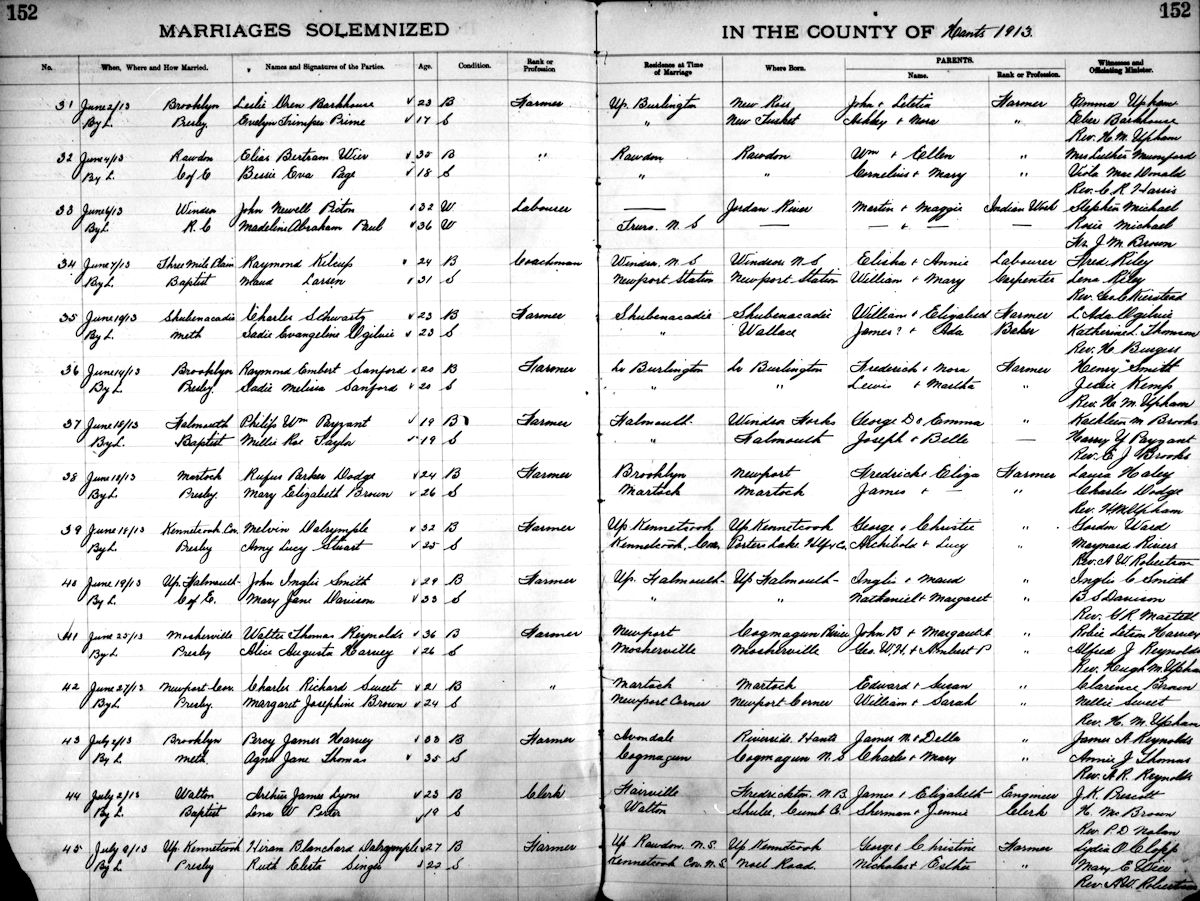 152
152
MARRIAGES SOLEMNIZED IN THE COUNTY OF Hants 1913.
No. When, Where and How Married. Names and Signatures of the Parties. Age. Condition. Rank or Profession Residence at Time of Marriage Where Born. PARENTS. Name. Rank or Profession. Witnesses and Officiating Minister.
31 June 2/13 Brooklyn Leslie Oren Barkhouse 23 B Farmer Up. Burlington New Ross John & Letitia Farmer Emma Upham
By L. Presby. Evelyn Trimper Prime 17 S " New Tusket Ashley & Nora " Eber Barkhouse
Rev. H. M. Upham
32 June 4/13 Rawdon Elias Bertram Wier 30 B " Rawdon Rawdon Wm & Ellen " Mrs Luther Mumford
By L. C of E Bessie Eva Page 18 S " " Cornelius & Mary " Viola MacDonald
Rev. C. R. Harris
33 June 6/13 Windsor John Newell Picton 32 W Labourer — Jordan River Martin & Maggie Indian Work Stephen Michael
By L. R. C Madeline Abraham Paul 36 W Truro. N. S — — & — — Rosie Michael
Fr. J. M. Brown
34 June 7/13 Three Mile Plain Raymond Kilcup 24 B Coachman Windsor, N. S Windsor N. S Elisha & Annie Labourer Fred Riley
By L. Baptist Maud Larsen 31 S Newport Station Newport Station William & Mary Carpenter Lena Riley
Rev. Geo C Kierstead
35 June 19/13 Shubenacadie Charles Schwartz 23 B Farmer Shubenacadie Shubenacadie William & Elizabeth Farmer L. Ada Ogilvie
By L. Meth Sadie Evangeline Ogilvie 23 S " Wallace James? & Ada Baker Katherine L. Thomson
Rev. H. Burgess
36 June 14/13 Brooklyn Raymond Embert Sanford 20 B Farmer Lr Burlington Lr Burlington Frederick & Nora Farmer Henry Smith
By L. Presby. Sadie Melissa Sanford 20 S " " Lewis & Martha " Jessie Kemp
Rev. H. M. Upham
37 June 18/13 Falmouth Philip Wm Payzant 19 B Farmer Falmouth Windsor Forks George D & Emma " Kathleen M Brooks
By L. Baptist Millie Rae Taylor 19 S " Falmouth Joseph & Belle — Harry Y Payzant
Rev. E J Brooks
38 June 18/13 Martock Rufus Parker Dodge 24 B Farmer Brooklyn Newport Fredrick & Eliza Farmer Laura Haley
By L. Presby. Mary Elizabeth Brown 26 S Martock Martock James & — " Charles Dodge
Rev. H M Upham
39 June 18/13 Kennetcook Cor. Melvin Dalrymple 32 B Farmer Up Kennetcook Up Kennetcook George & Christie " Gordon Ward
By L. Presby Amy Lucy Stuart 25 S Kennetcook, Cor. Porters Lake Hlfx Co. Archibold & Lucy " Maynard Rivers
Rev. A W. Robertson
40 June 19/13 Up. Falmouth John Inglis Smith 29 B Farmer Up. Falmouth Up Falmouth Inglis & Maud " Inglis C Smith
By L. C of E. Mary Jane Davison 33 S " " Nathaniel & Margaret " B S Davison
Rev. G. R. Martell
41 June 25/13 Mosherville Walter Thomas Reynolds 36 B Farmer Newport Cogmagun River John B & Margaret A " Robie Seton Harvey
By L. Presby Alice Augusta Harvey 26 S Mosherville Mosherville Geo. W. H. & Amber P " Alfred J Reynolds
Rev. Hugh M. Upham
42 June 27/13 Newport Cor. Charles Richard Sweet 21 B " Martock Martock Edward & Susan " Clarence Brown
By L Presby. Margaret Josephine Brown 24 S Newport Corner Newport Corner William & Sarah " Nellie Sweet
Rev. H. M. Upham
43 July 2/13 Brooklyn Percy James Harvey 33 B Farmer Avondale Riverside. Hants James N & Della " James A Reynolds
By L. Meth. Agnes Jane Thomas 35 S Cogmagun Cogmagun N. S Charles & Mary " Annie J Thomas
Rev. A. R. Reynolds
44 July 2/13 Walton Arthur James Lyons 23 B Clerk Fairville Fredrickton, N. B. James & Elizabeth Engineer J. K.
By L. Baptist Lena W Porter 19 S Walton Shulee, Cumb C. Sherman & Jennie Clerk H. Mc Brown
Rev. P. D Nolan
45 July 9/13 Up Kennetcook Hiram Blanchard Dalrymple 27 B Farmer Up Rawdon, N. S. Up Kennetcook George & Christine Farmer Lydia O Clopp
By L. Presby Ruth Elesta Singer 22 S Kennetcook Cor. N. S. Noel Road. Nicholas & Esther " Mary E Wier
Rev. A. W. Robertson